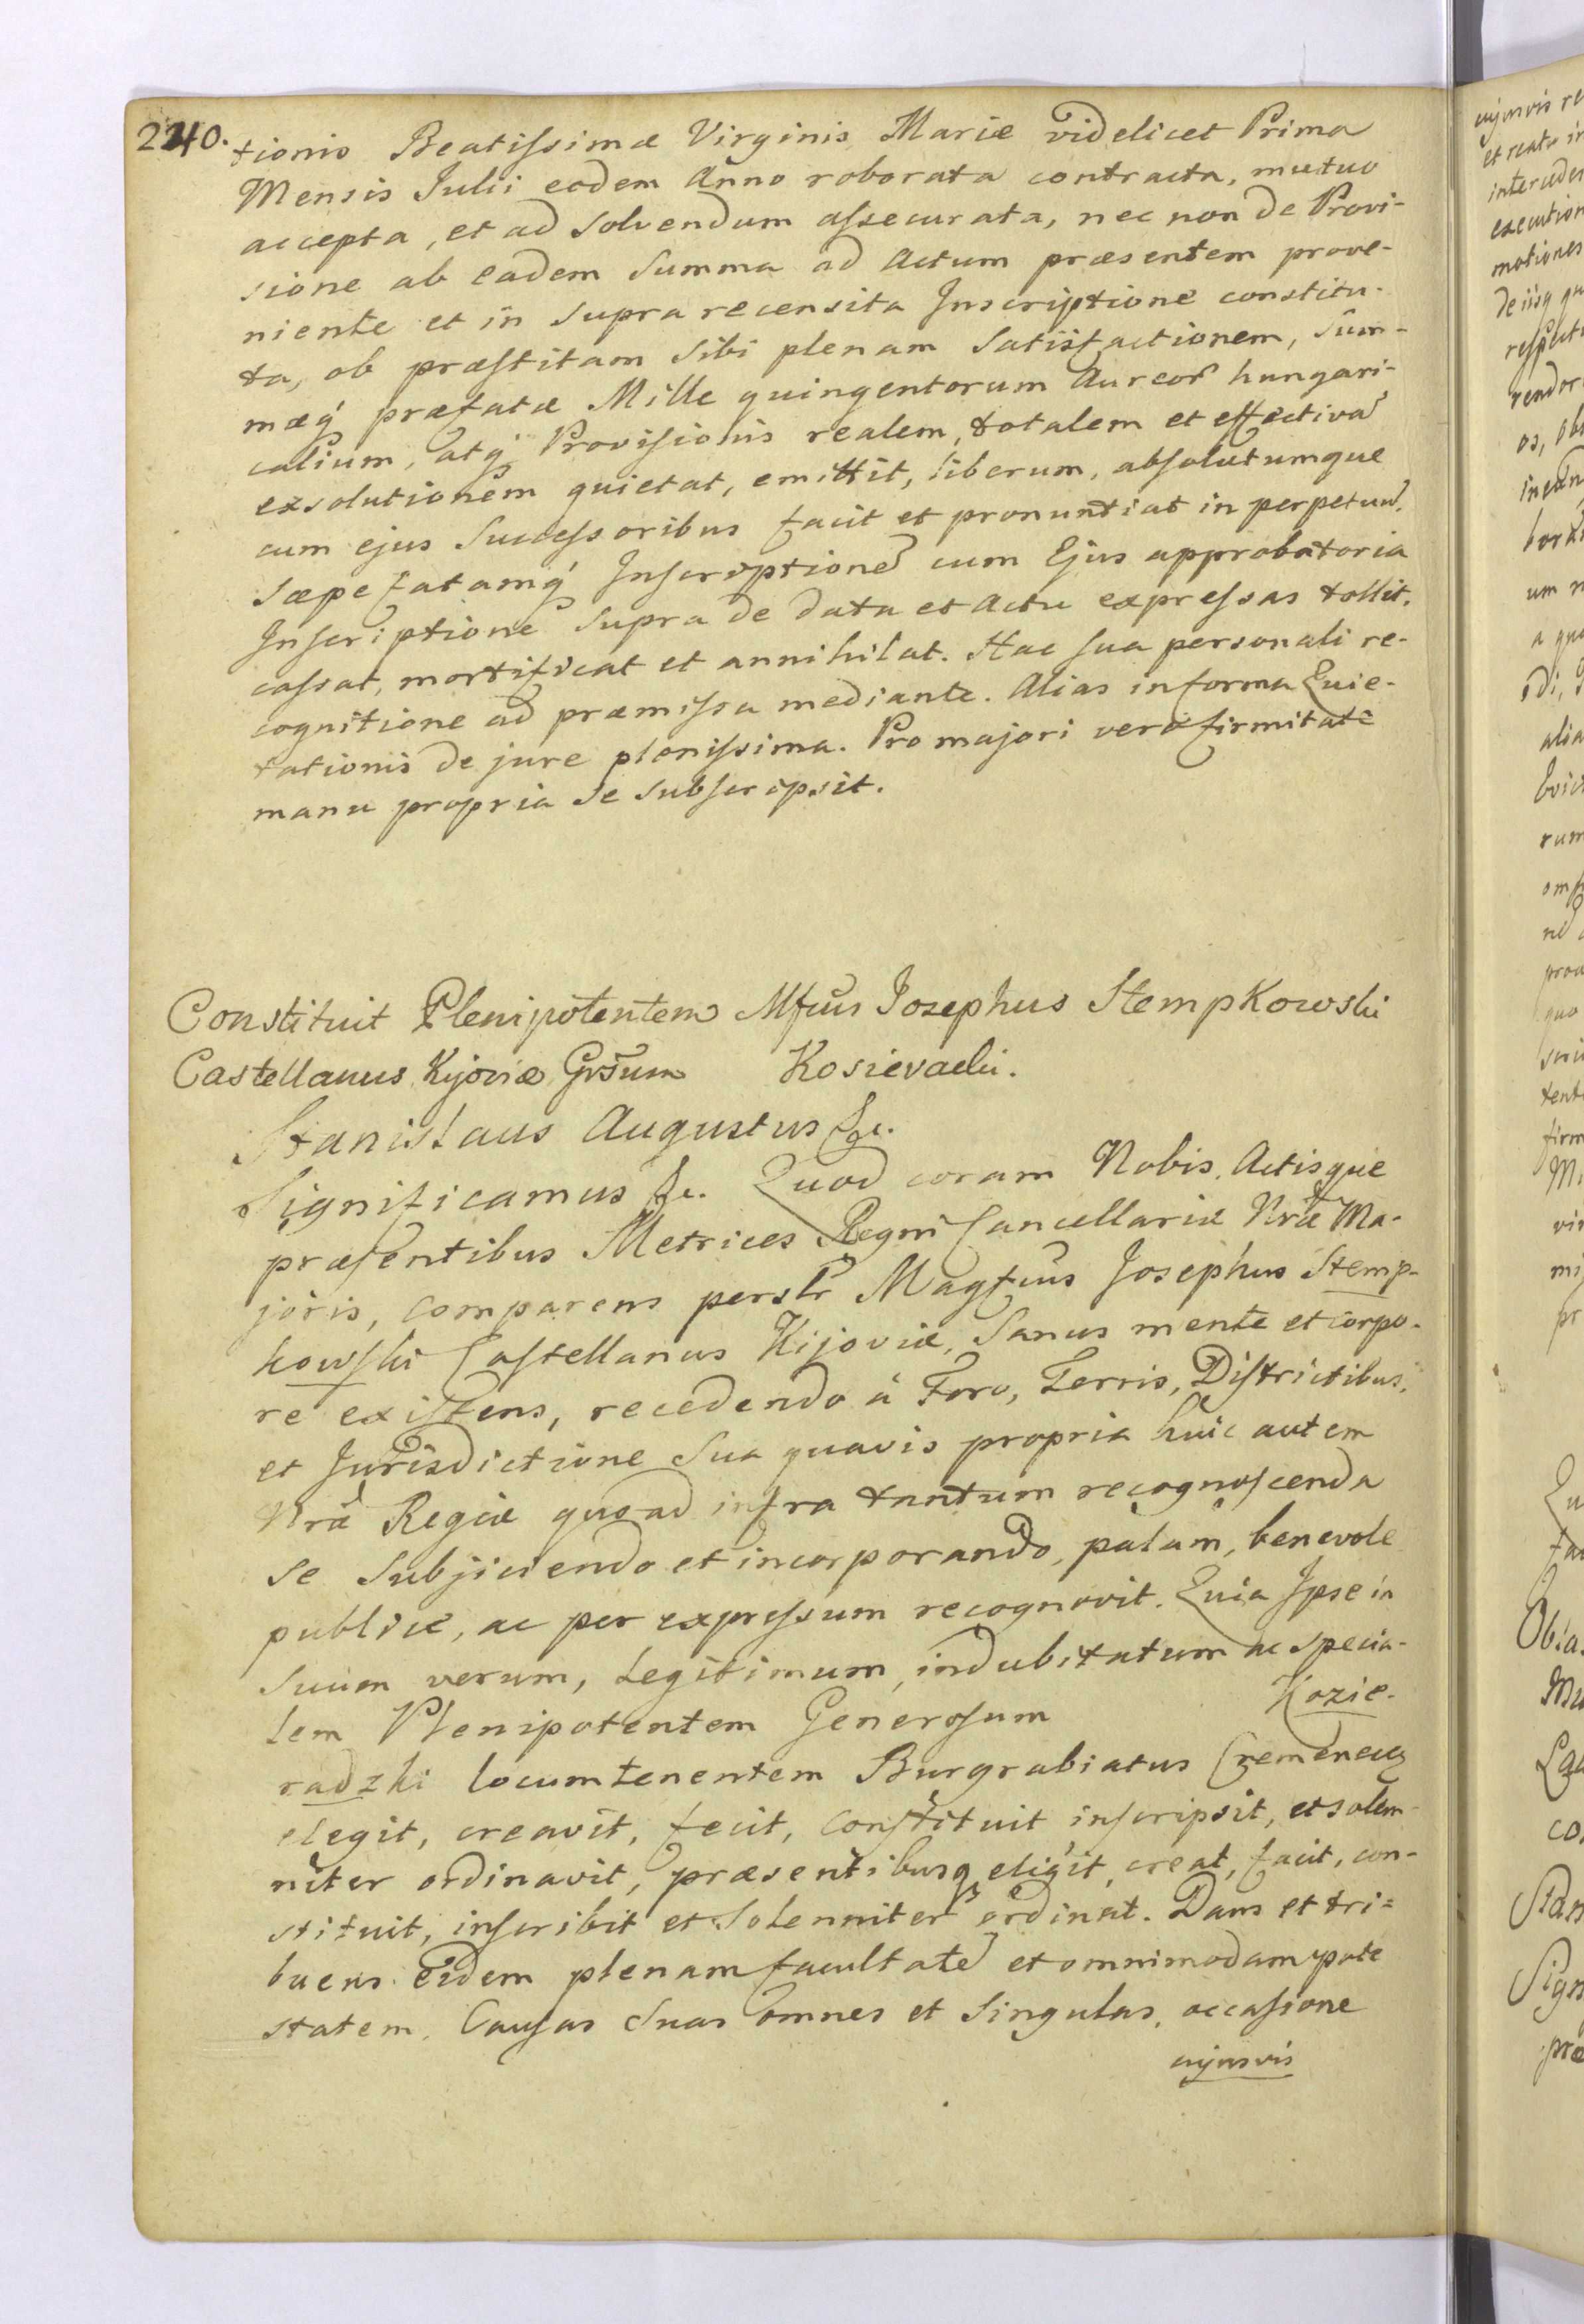 240.
tionis Beatissimæ Virginis Mariæ videlicet Prima
Mensis Julii eodem Anno roborata contracta, mutuo
accepta, et ad solvendum assecurata, nec non de Provi-
sione ab eadem Summa ad Actum præsentem prove-
niente et in supra recensita Inscriptione constitu-
ta, ob præstitam sibi plenam Satisfactionem, Sum-
mæq́ præfatæ Mille quingentorum Aureor̃ hungari-
calium, atq́ Provisionis realem, totalem et effectivã
exsolutionem quietat, emittit, liberum, absolutumque
cum ejus Successoribus facit et pronuntiat in perpetuũ.
Sæpe fatamq́ Inscriptionẽ cum Ejus approbatoria
Inscriptione supra de data et Actu expressas tollit,
cassat, mortificat et annihilat. Hac sua personali re-
cognitione ad præmissa mediante. Alias in forma Quie-
tationis de jure plenissima. Pro majori vero firmitate
manu propria se subscripsit.
Constituit Plenipotentem Mfcus Josephus Stempkowski
Castellanus Kijoviæ Gr̃sum Kosieradzki.
Stanislaus Augustus &c.
Significamus &c. Quod coram Nobis, Actisque
præsentibus Metrices Regni Cancellariæ Nr̃æ Ma-
joris, comparens perslr̃ Magfcus Josephus Stemp-
kowski Castellanus Kijoviæ, Sanus mente et corpo-
re existens, recedendo à Foro, Terris, Districtibus,
et Jurisdictione Sua quavis propria huic autem
Nr̃æ Regiæ quoad infra tantum recognoscenda
se subjiciendo et incorporando, palam, benevole
publice, ac per expressum recognovit. Quia Ipse in
suum verum, legitimum, indubitatum ac specia-
lem Plenipotentem Generosum Kozie-
radzki locumtenentem Burgrabiatus Cremenecz
elegit, creavit, fecit, constituit inscripsit, et solem-
niter ordinavit, præsentibusq eligit, creat, facit, con-
stituit, inscribit et solenniter ordinat. Dans et tri=
buens eidem plenam facultatẽ et omnimodam pote
statem, Causas Suas omnes et singulas, occasione
cujusvis